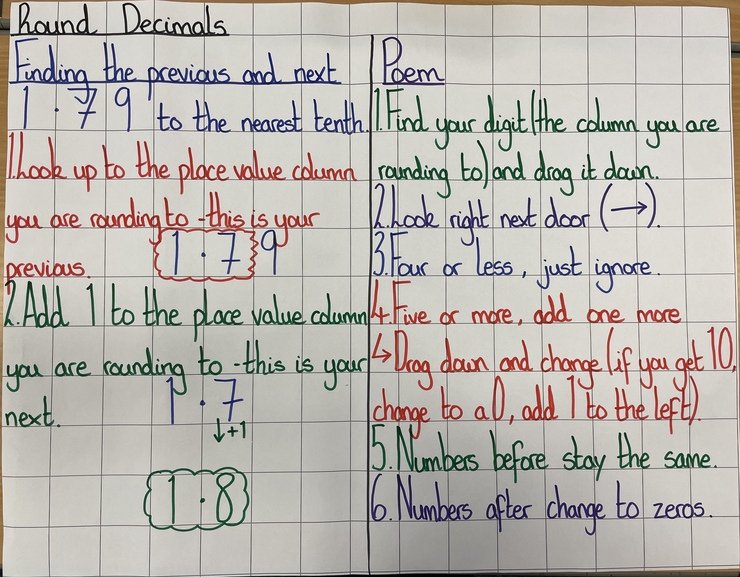 Round Decimals
Finding the previous and next
1.79 to the nearest tenth.
1.Look up to the place value column
you are rounding to - this is your
previous.
1.79
2.Add 1 to the place value column
you are rounding to - this is your
next.
1.7
↓+1
1.8
Poem
1.Find your digit (the column you are
rounding to) and drag it down.
2.Look right next door (→).
3.Four or less, just ignore.
4.Five or more, add one more
↳Drag down and change (if you get 10,
change to a 0, add 1 to the left)
5.Numbers before stay the same.
6.Numbers after change to zeros.